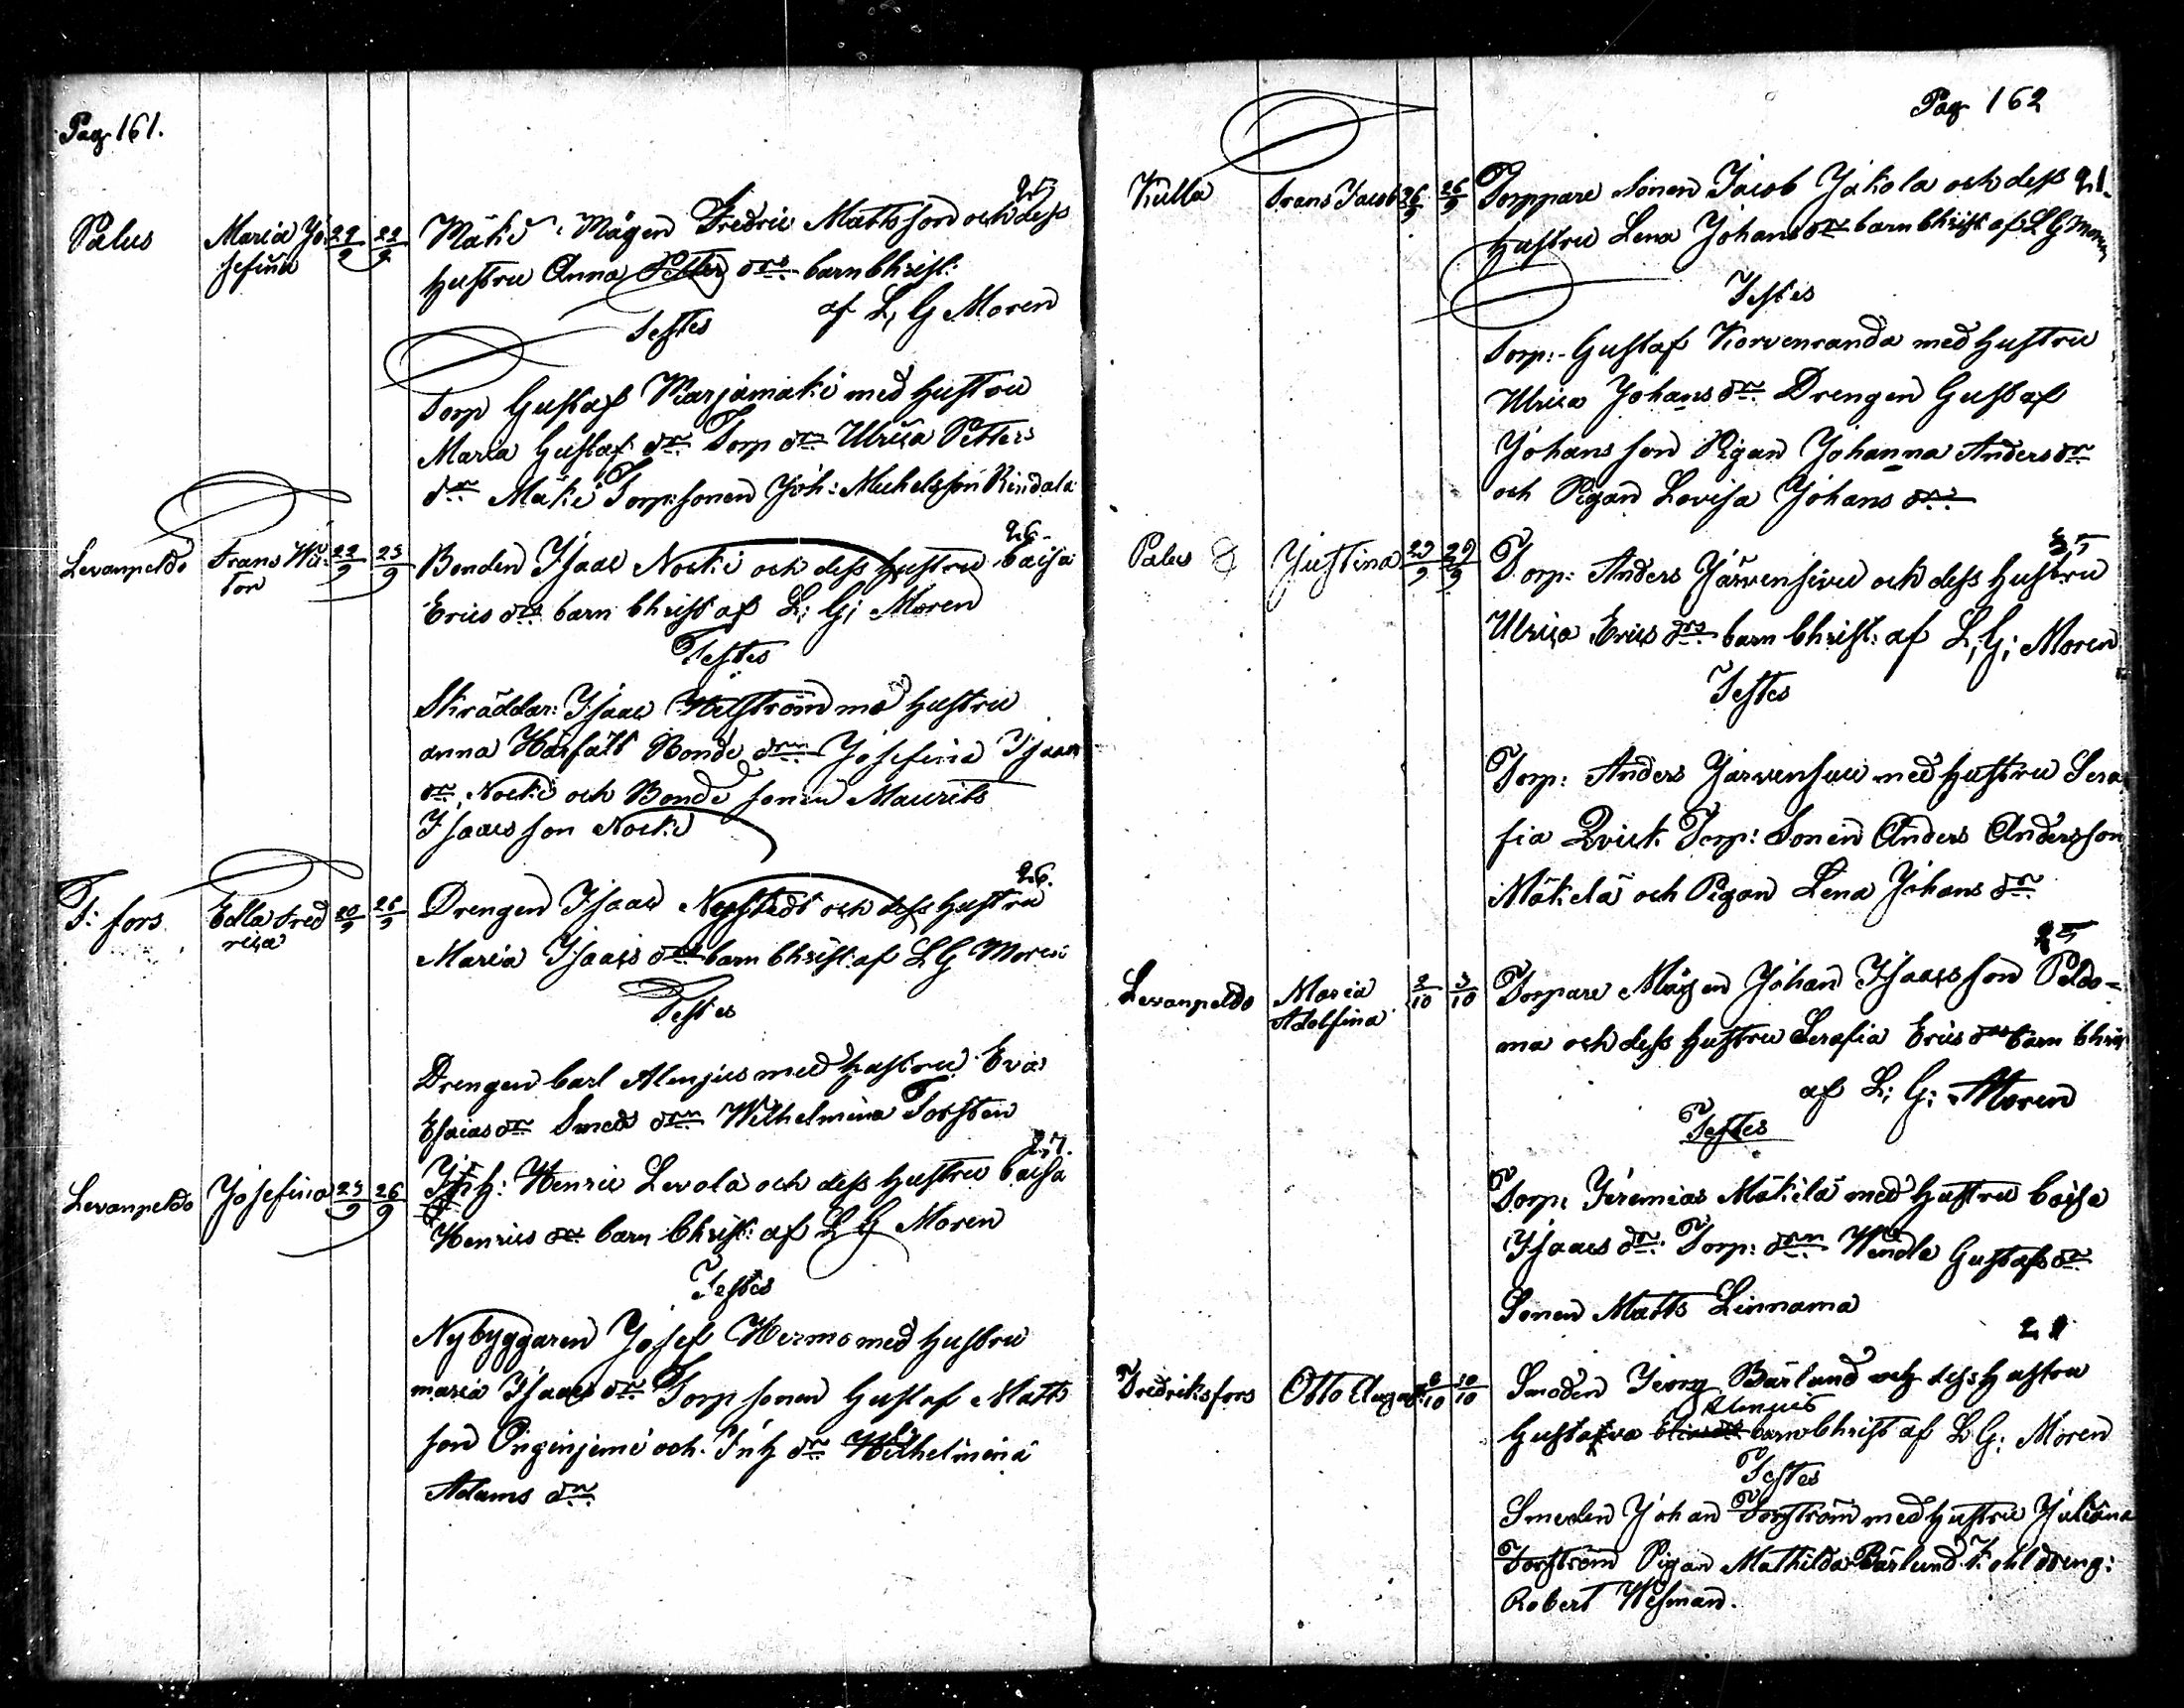 Pag. 161.
Palus
Maria Jo-
sefina
22/9 22/9
25
Mäki Mågen Fredric Mattsson och dess
hustru Anna Petter drs barn Christ:
af L, G Moren
Testes
Torp Gustaf Marjamäki med hustru
Maria Gustaf dr Torp dr Ulrica Petters
dr Mäki Torp: sonen Joh: Michelsson Rindala
Levanpeldo
Frans Wic-
tor
22/9 23/9
26
Bonden Isaac Nocki och dess hustru Caisa
Erics drs barn Christ af L; G; Moren
Testes
Skräddar: Isaac Helström med hustru
anna Härfält Bonde drn Josefina Isaacs
dr, Nocki och Bonde sonen Maurits
Isaacsson Nocki
F: fors
Edla Fred
rica
20/9 26/9
26.
Drengen Isaac Nystedt och dess hustru
Maria Isaacs drs barn Christ. af L G Moren
Testes
Drengen Carl Alenjus med hustru Eva
Esaias dr Smeds drn Wilhelmina Torsten
Levanpeldo
Josefina
25/9 26/9
27.
Inh: Henric Levola och dess hustru Caisa
Henrics drs barn Christ: af L G Moren
Testes
Nybyggaren Josef Hermo med hustru
maria Isaacs dr Torp sonen Gustaf Matts
son Pinginjemi och Inh dr Wilhelmina
Adams dr
Pag 162
Kulla
Frans Jacob
26/9 26/9
21.
Torppare Sonen Jacob Jakola och dess
hustru Lena Johans drs barn Christ af L G Moren
Testes
Torp:- Gustaf Korvenranda med hustru
Ulrica Johans dr Drengen Gustaf
Johansson Pigan Johanna Anders dr
och Pigan Lovisa Johans dr
Palus
Justina
29/9 29/9
35
Torp: Anders Järvensivu och dess hustru
Ulrica Erics drs barn Christ: af L; G; Moren
Testes
Torp: Anders Jarvensivu med hustru Sera
fia Qvick Torp: Sonen Anders Andersson
Mäkelä och Pigan Lena Johans dr
Levanpeldo
Maria
Adolfina
2/10 3/10
25
Torpare Mågen Johan Isaacsson Peldo-
ma och dess hustru Serafia Erics drs barn Chris
af L; G; Moren
Testes
Torp: Jeremias Mäkilä med hustru Caisa
Isaacs dr: Torp: drn Wendla Gustafs dr
Sonen Matts Linnama
Fredriksfors
Otto August
8/10 10/10
Smeden Georg Bärlund och dess hustru
Alenius
Gustafva barn Christ af L G; Moren
Testes
Smeden Johan Torström med hustru Juliana
Torström Pigan Mathilda Bärlund Kohldreng:
Robert Wesman.